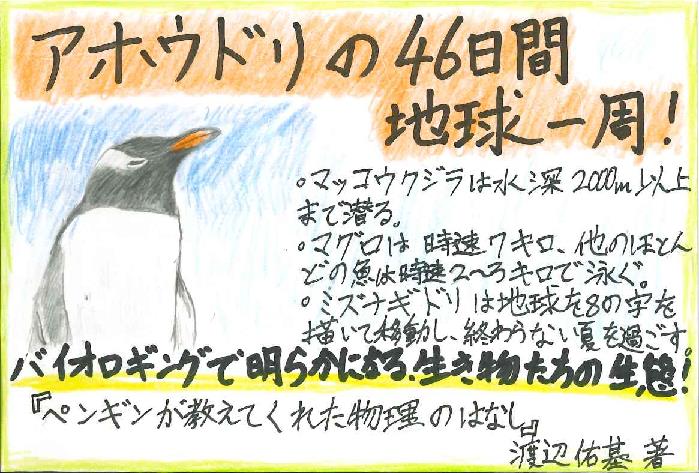 アホウドリの46日間
地球一周!
○マッコウクジラは水深2000m以上
まで潜る。
○マグロは時速7キロ、他のほとん
どの魚は時速2〜3キロで泳ぐ。
○ミズナギドリは地球を8の字を
描いて移動し、終わらない夏を過ごす。
バイオロギングで明らかになる、生き物たちの生態!
『ペンギンが教えてくれた物理のはなし』
渡辺佑基 著